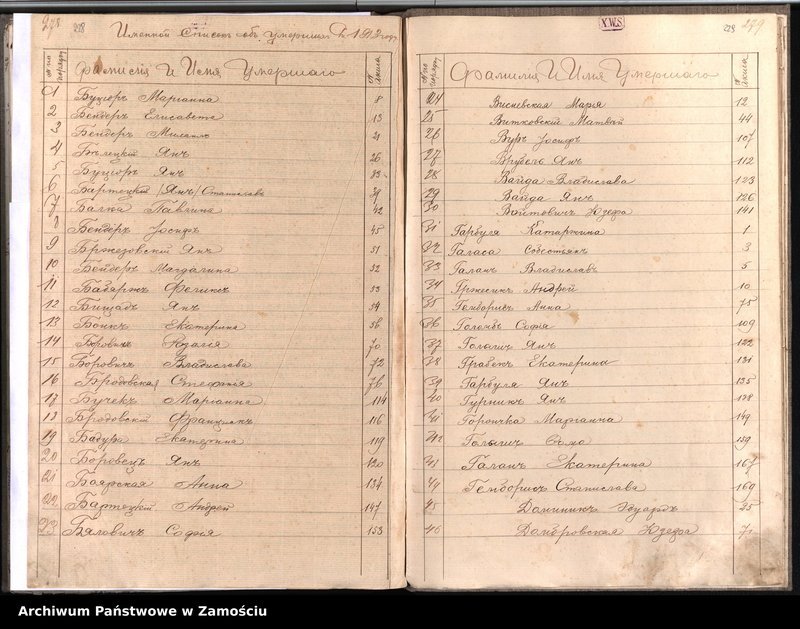 278
Именной Список об умерших За 1912 год
№ по порядку Фамилия И Имя Умершаго № Акта
1 Буцюръ Марианна 8
2 Бендеръ Елисавета 13
3 Бендеръ 21
4 Бѣлецкій Янъ 26
5 Буцюръ Янъ 33
6 Бартецкій /Янъ/ Станиславъ 39
7 Балка Павлина 42
8 Бендеръ Іосифъ 45
9 Бржезовскій Янъ 51
10 Бендеръ Магдалина 52
11 53
12 Бищадъ Янъ 54
13 Екатерина 56
14 Боровичъ 70
15 Боровичъ Владислава 72
16 Бродовская Стефанія 76
17 Бучекъ Марианна 114
18 Бродовскій Францишекъ 116
19 Бадура Екатерина 119
20 Боровецъ Янъ 120
21 Боярская Анна 134
22 Бартецкій Андрей 147
23 Бяловичъ Софія 153
X.W.S.
279
№ по порядку Фамилия И Имя Умершаго № Акта
24 Висневская Марія 12
25 Витковскій Матвѣй 44
26 Вуръ Іосифъ 107
27 Врубель Янъ 112
28 Вайда Владислава 123
29 Вайда Янъ 126
30 Войтовичъ Юзефа 141
31 Гарбуля Катаржина 1
32 Галаса 3
33 Галанъ Владиславъ 5
34 Андрей 10
35 Гендорисъ Анна 75
36 Голомбъ Софія 109
37 Янъ 122
38 Грабекъ Екатерина 131
39 Гарбуля Янъ 135
40 Гурникъ Янъ 138
41 Марианна 149
42 159
43 Галанъ Екатерина 167
44 Гендорисъ Станислава 169
45 Доминикъ Эдуардъ 25
46 Домбровская Юзефа 71
Archiwum Państwowe w Zamościu